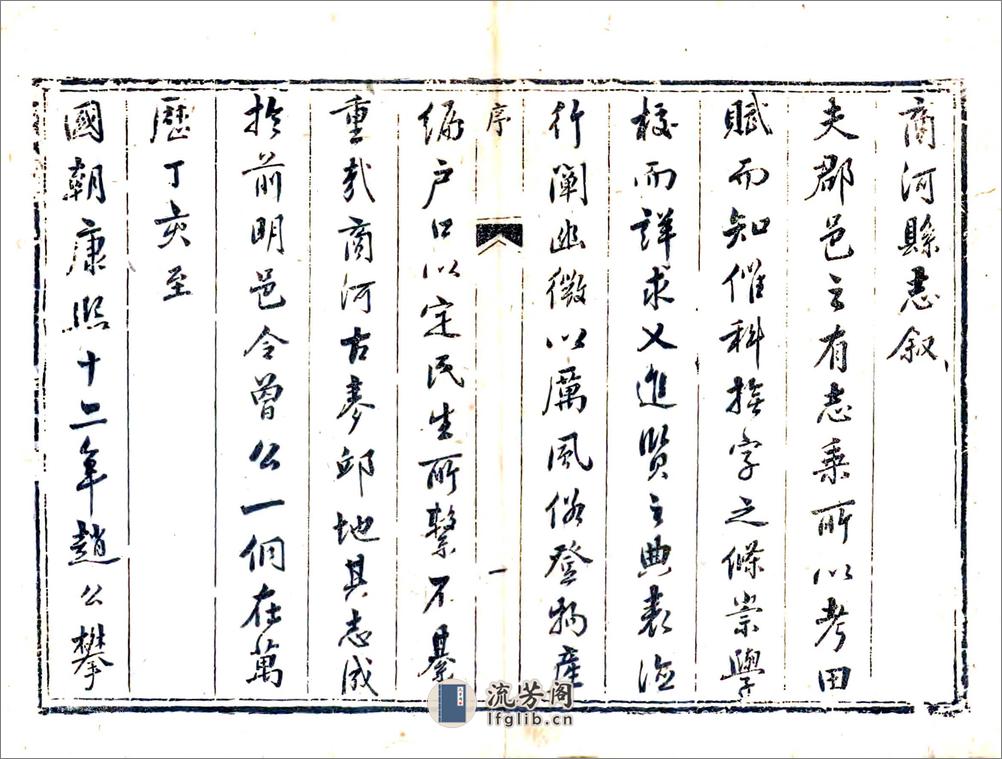 商河縣志叙
夫郡邑之有志乘所以考田
賦而知催科撫字之條崇學
校而詳求乂進賢之典表治
行闡幽微以厲風俗登物產
序
一
編戶口以定民生所繫不綦
重哉商河古麥邱地其志成
於前明邑令曾公一侗在萬
歷丁亥至
國朝康熙十二年趙公攀
流芳阁
lfglib.cn